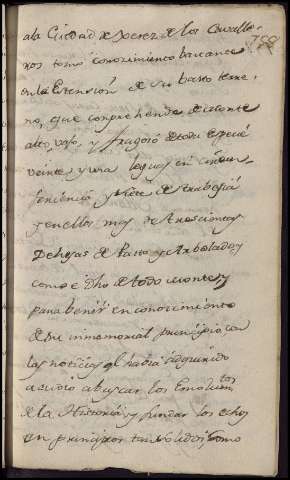 ala Ciudad de Xerez de los Cavalle-
ros tomó conocimiento bastante
en la Estension de su basto terre-
no, que comprehende de monte
alto, vajo, y fragoso de toda especie
veinte y una leguas en circun-
ferencia y siete de trabesia
y en ellos mas de trescientas
Dehesas de Pasto y Arbolado,
como è dho de todo monte, y
para benir en conocimiento
de su inmemorial principio con
las noticias q.e havia adquirido
acudio a buscar los Emolum.tos
de la Historia y fundar los echos
en principios tan solidos, como